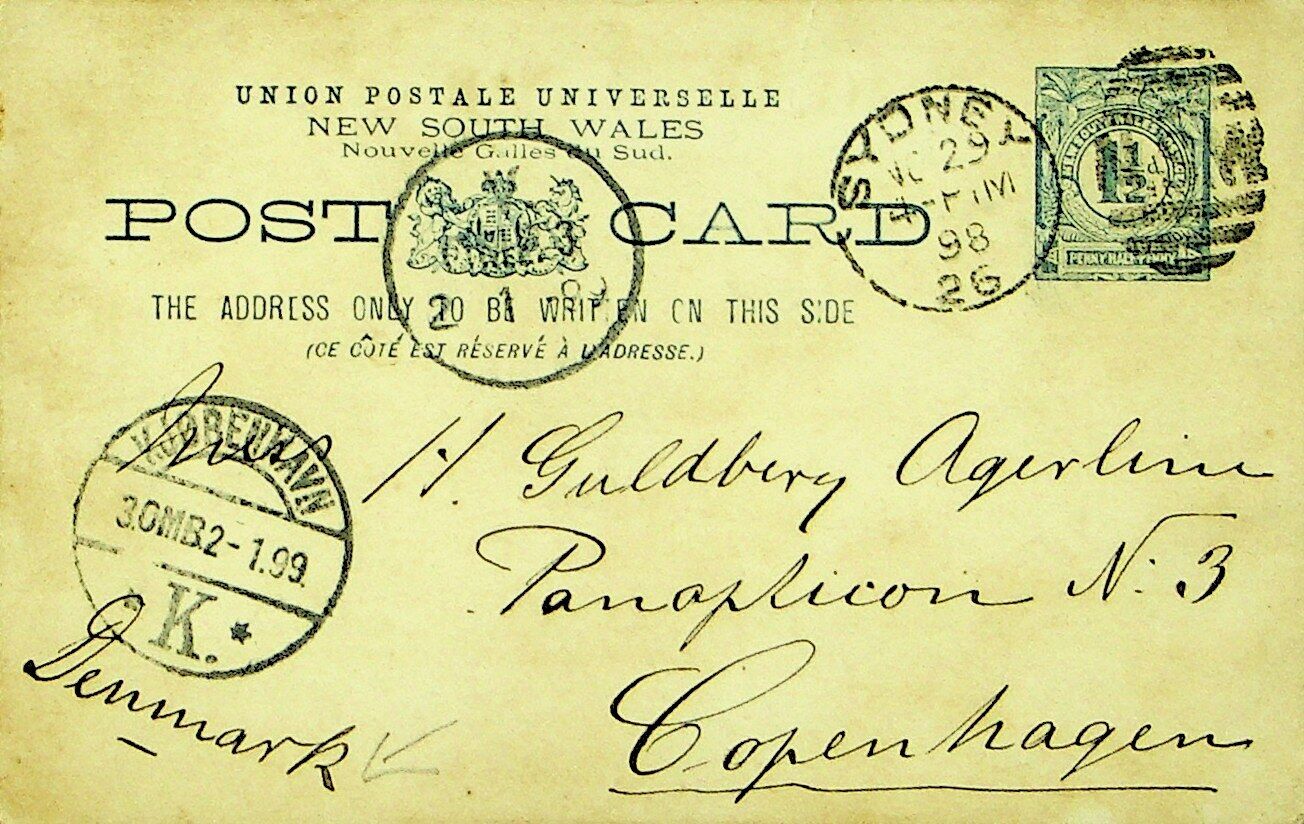 UNION POSTALE UNIVERSELLE
NEW SOUTH WALES
Nouvelle Galles du Sud.
POST CARD
THE ADDRESS ONLY TO BE WRITTEN ON THIS SIDE
(CE CÔTÉ EST RÉSERVÉ À L'ADRESSE.)
SYDNEY
29
PM
98
26
1½d
PENNY HALFPENNY
2 1
KJØBENHAVN
3.OMB.2-1.99.
K.
H. Guldberg Agerlin
Panopticon N: 3
Copenhagen
Denmark